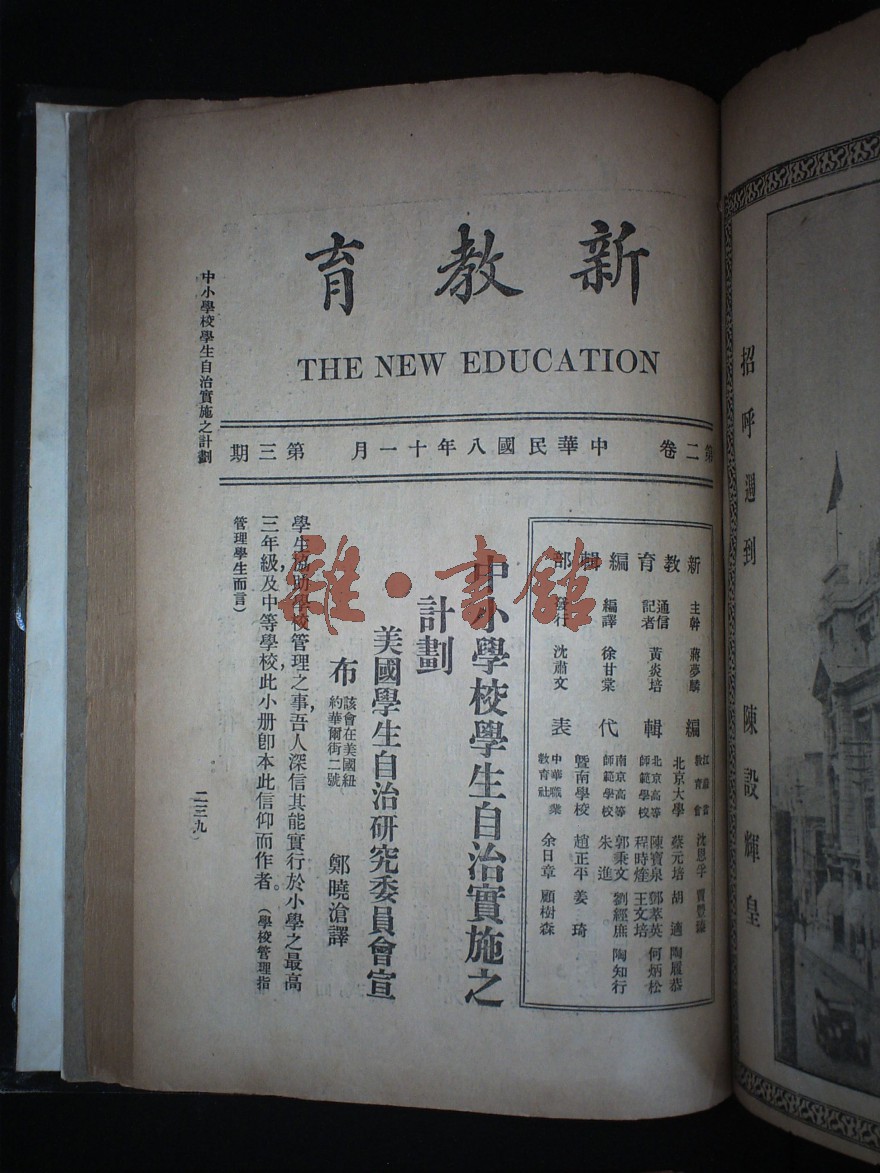 新教育
THE NEW EDUCATION
第二卷　中華民國八年十一月　第三期
新教育編輯部
主幹　蔣夢麟
通信記者　黃炎培
編譯　徐甘棠
發行　沈肅文
編輯代表
江蘇省教育會　沈恩孚　賈豐臻
北京大學　蔡元培　胡適　陶履恭
北京高等師範學校　陳寶泉　鄧萃英　何炳松
程時煃　王文培
南京高等師範學校　郭秉文　劉經庶　陶知行
朱進
暨南學校　趙正平　姜琦
中華職業教育社　余日章　顧樹森
中小學校學生自治實施之
計劃
美國學生自治研究委員會宣
布　該會在美國紐約華爾街二號　鄭曉滄譯
學生協助學校管理之事，吾人深信其能實行於小學之最高
三年級，及中等學校，此小册卽本此信仰而作者。（學校管理指
管理學生而言）
中小學校學生自治實施之計劃
二三九
招呼週到　陳設輝皇
雜·書館